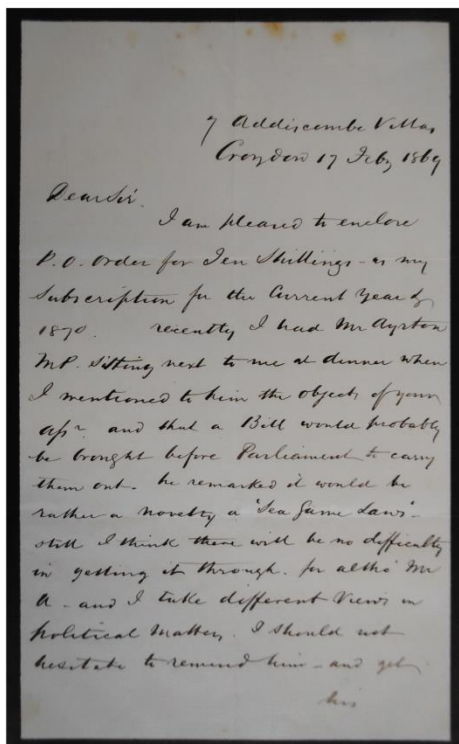 7 Addiscombe Villas
Croydon 17 Feby 1869
Dear Sir.
I am pleased to enclose
P.O. order for Ten Shillings - as my
Subscription for the Current Year &
1870. recently I had Mr Ayrton
MP. sitting next to me at dinner when
I mentioned to him the objects of your
assn. and that a Bill would probably
be brought before Parliament to carry
them out. he remarked it would be
rather a novelty a 'Sea Game Laws' -
still I think there will be no difficulty
in getting it through. for altho' Mr
A - and I take different views in
political matters, I should not
hesitate to remind him - and get
his